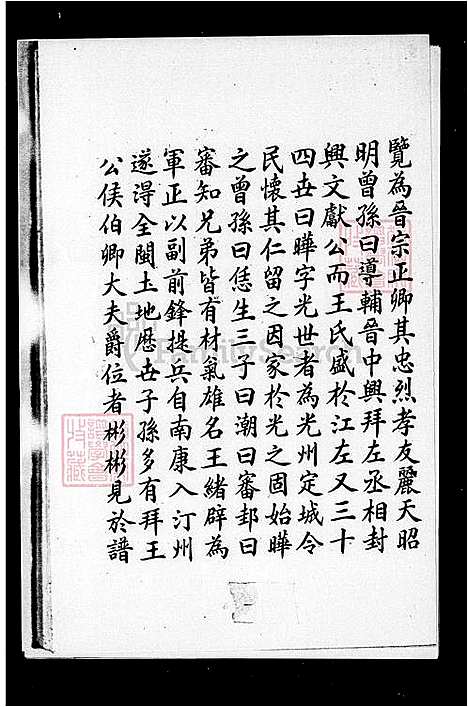 覽為晉宗正卿其忠烈孝友麗天昭
明曾孫曰導輔晉中興拜左丞相封
興文獻公而王氏盛於江左又三十
四世曰曄字光世者為光州定城令
民懷其仁留之因家於光之固始曄
之曾孫曰恁生三子曰潮曰審邽曰
審知兄弟皆有材氣雄名王緒辟為
軍正以副前鋒提兵自南康入汀州
遂得全閩土地歷世子孫多有拜王
公侯伯卿大夫爵位者彬彬見於譜
FamilySearch